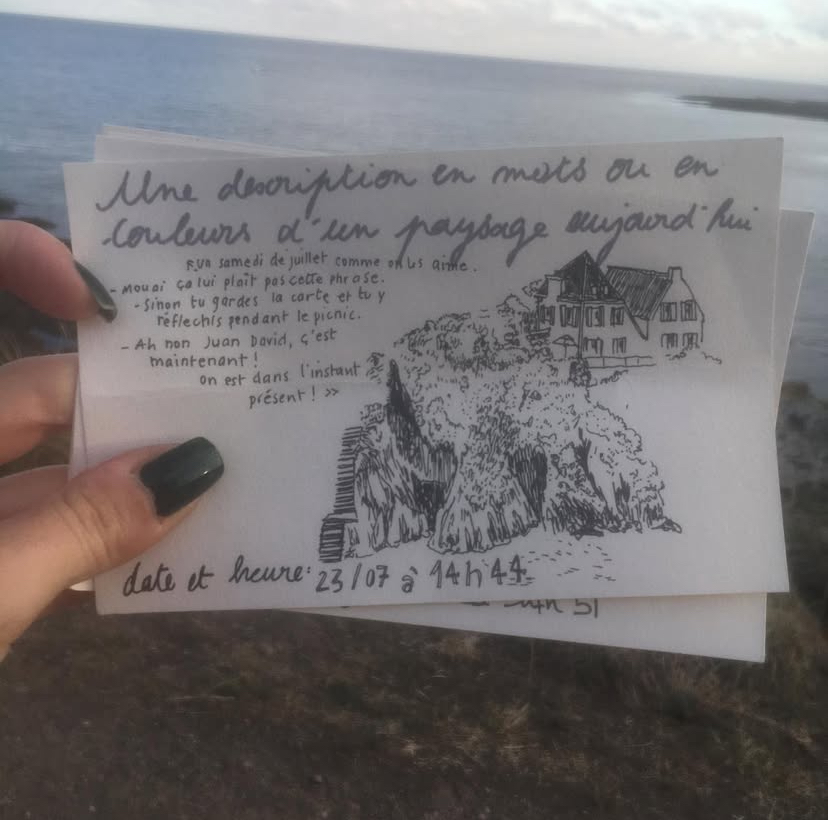 Une description en mots ou en
couleurs d'un paysage aujourd'hui
«Un samedi de juillet comme on les aime.
- Mouai ça lui plaît pas cette phrase.
- Sinon tu gardes la carte et tu y
réflechis pendant le picnic.
- Ah non Juan David, c'est
maintenant !
on est dans l'instant
présent ! »
date et heure: 23/07 à 14h44
51